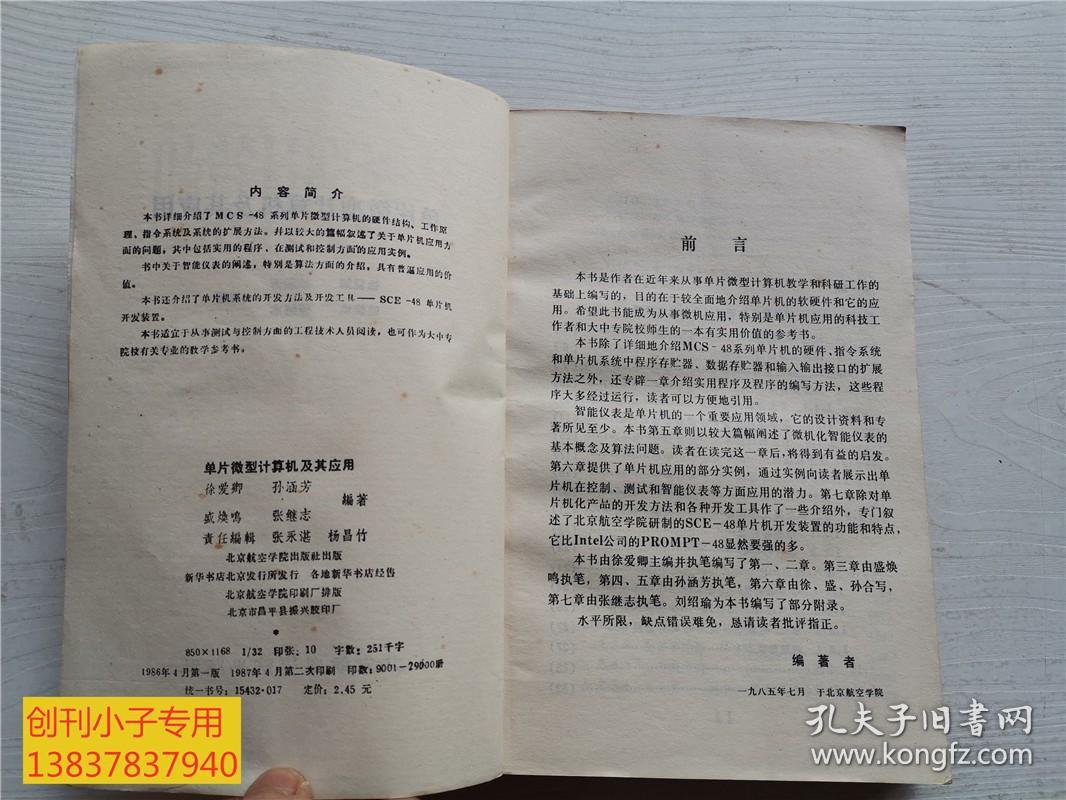 内容简介
本书详细介绍了MCS-48系列单片微型计算机的硬件结构、工作原
理、指令系统及系统的扩展方法。并以较大的篇幅叙述了关于单片机应用方
面的问题，其中包括实用的程序、在测试和控制方面的应用实例。
书中关于智能仪表的阐述，特别是算法方面的介绍，具有普遍应用的价
值。
本书还介绍了单片机系统的开发方法及开发工具——SCE-48单片机
开发装置。
本书适宜于从事测试与控制方面的工程技术人员阅读，也可作为大中专
院校有关专业的教学参考书。
单片微型计算机及其应用
徐爱卿 孙涵芳
编著
盛焕鸣 张继志
责任编辑 张承湛 杨昌竹
北京航空学院出版社出版
新华书店北京发行所发行 各地新华书店经售
北京航空学院印刷厂排版
北京市昌平县振兴胶印厂
*
850×1168 1/32 印张：10 字数：251千字
1986年4月第一版 1987年4月第二次印刷 印数：9001-29000册
统一书号：15432·017 定价：2.45元
创刊小子专用
13837837940
前言
本书是作者在近年来从事单片微型计算机教学和科研工作的
基础上编写的，目的在于较全面地介绍单片机的软硬件和它的应
用。希望此书能成为从事微机应用，特别是单片机应用的科技工
作者和大中专院校师生的一本有实用价值的参考书。
本书除了详细地介绍MCS-48系列单片机的硬件、指令系统
和单片机系统中程序存贮器、数据存贮器和输入输出接口的扩展
方法之外，还专辟一章介绍实用程序及程序的编写方法，这些程
序大多经过运行，读者可以方便地引用。
智能仪表是单片机的一个重要应用领域，它的设计资料和专
著所见至少。本书第五章则以较大篇幅阐述了微机化智能仪表的
基本概念及算法问题。读者在读完这一章后，将得到有益的启发。
第六章提供了单片机应用的部分实例，通过实例向读者展示出单
片机在控制、测试和智能仪表等方面应用的潜力。第七章除对单
片机化产品的开发方法和各种开发工具作了一些介绍外，专门叙
述了北京航空学院研制的SCE-48单片机开发装置的功能和特点，
它比Intel公司的PROMPT-48显然要强的多。
本书由徐爱卿主编并执笔编写了第一、二章。第三章由盛焕
鸣执笔，第四、五章由孙涵芳执笔，第六章由徐、盛、孙合写，
第七章由张继志执笔。刘绍瑜为本书编写了部分附录。
水平所限，缺点错误难免，恳请读者批评指正。
编著者
一九八五年七月 于北京航空学院
孔夫子旧书网
www.kongfz.com